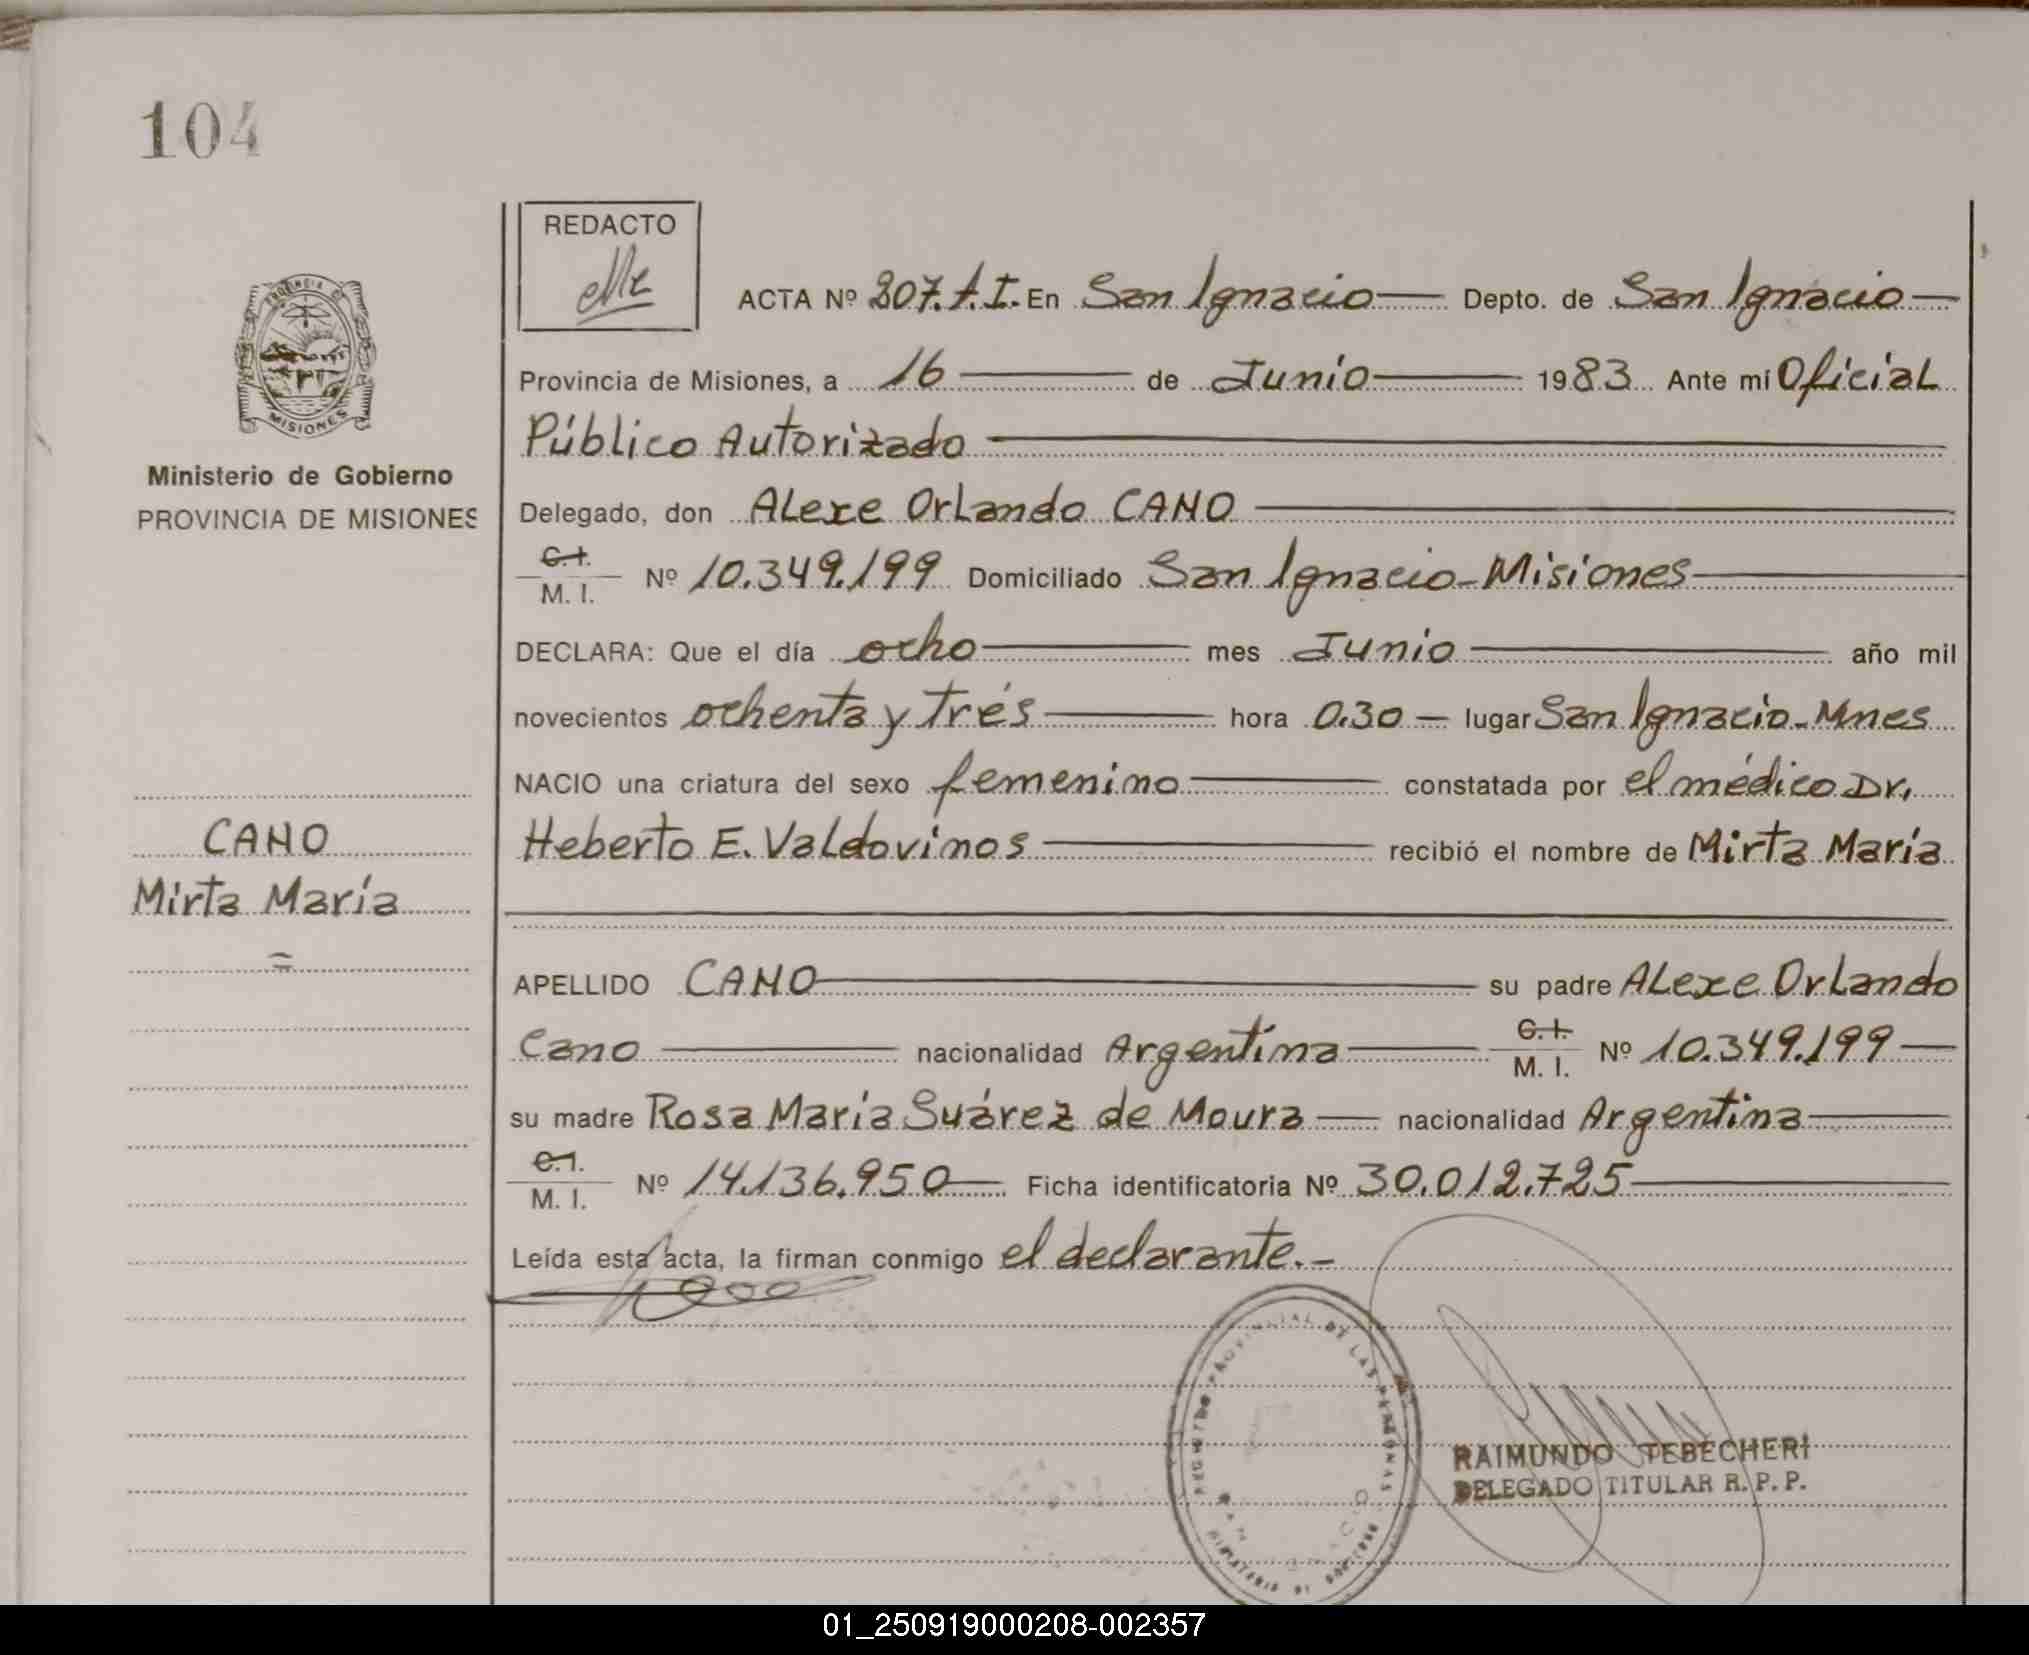 104
REDACTO
ACTA Nº 207.f.I. En San Ignacio Depto. de San Ignacio
Provincia de Misiones, a 16 de Junio 1983 Ante mí Oficial
Público Autorizado
Delegado, don Alexe Orlando CANO
C.I. M. I. Nº 10.349.199 Domiciliado San Ignacio - Misiones
DECLARA: Que el día ocho mes Junio año mil
novecientos ochenta y trés hora 0.30 lugar San Ignacio - Mnes
NACIO una criatura del sexo femenino constatada por el médico Dr.
Heberto E. Valdovinos recibió el nombre de Mirta María
APELLIDO CANO su padre Alexe Orlando
Cano nacionalidad Argentina C.I. M. I. Nº 10.349.199
su madre Rosa María Suárez de Moura nacionalidad Argentina
C.I. M. I. Nº 14.136.950 Ficha identificatoria Nº 30.012.725
Leída esta acta, la firman conmigo el declarante.-
PROVINCIA DE MISIONES
Ministerio de Gobierno
PROVINCIA DE MISIONES
CANO
Mirta María
REGISTRO PROVINCIAL DE LAS PERSONAS
SAN IGNACIO
MINISTERIO DE GOBIERNO
RAIMUNDO TEBECHERI
DELEGADO TITULAR R. P. P.
01_250919000208-002357